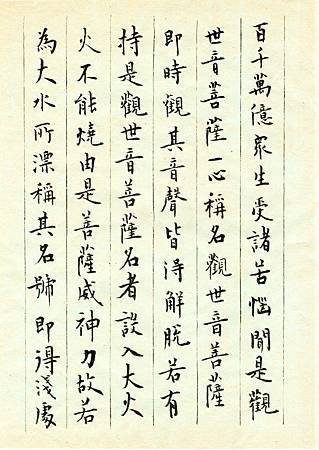 百千萬億眾生受諸苦惱聞是觀
世音菩薩一心稱名觀世音菩薩
即時觀其音聲皆得解脫若有
持是觀世音菩薩名者設入大火
火不能燒由是菩薩威神力故若
為大水所漂稱其名號即得淺處